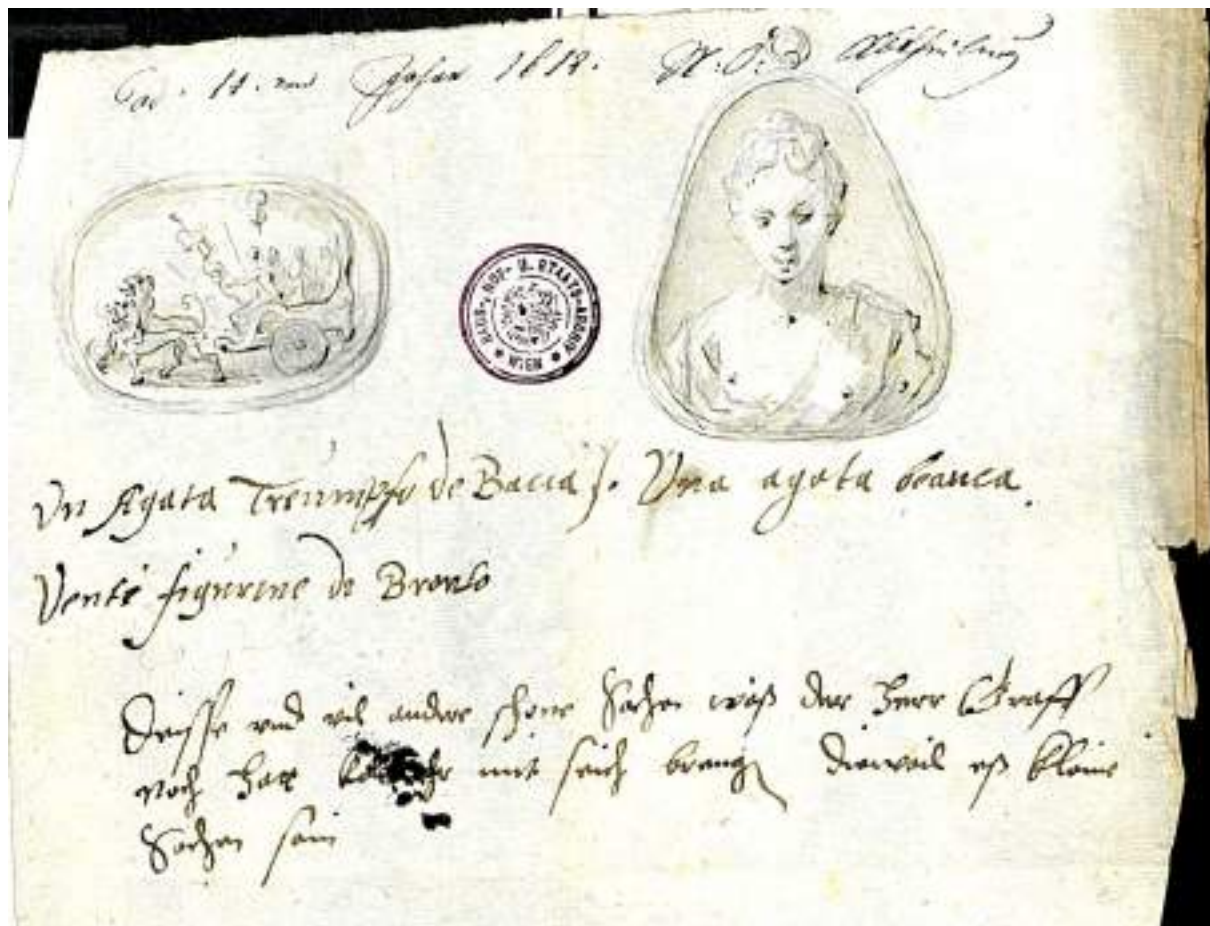 ad. 11. Jahr 1618. N: Ö: Abtheilung
HAUS-, HOF- U. STAATS-ARCHIV WIEN
Un Agata Treumpfo de Bacca). Una agata beanca.
Vente figurine de Bronso
Drisse und vil andere schone Sachen waß der Herr Graff
noch har mit sich breng dieweil eß kleine
Sachen sein